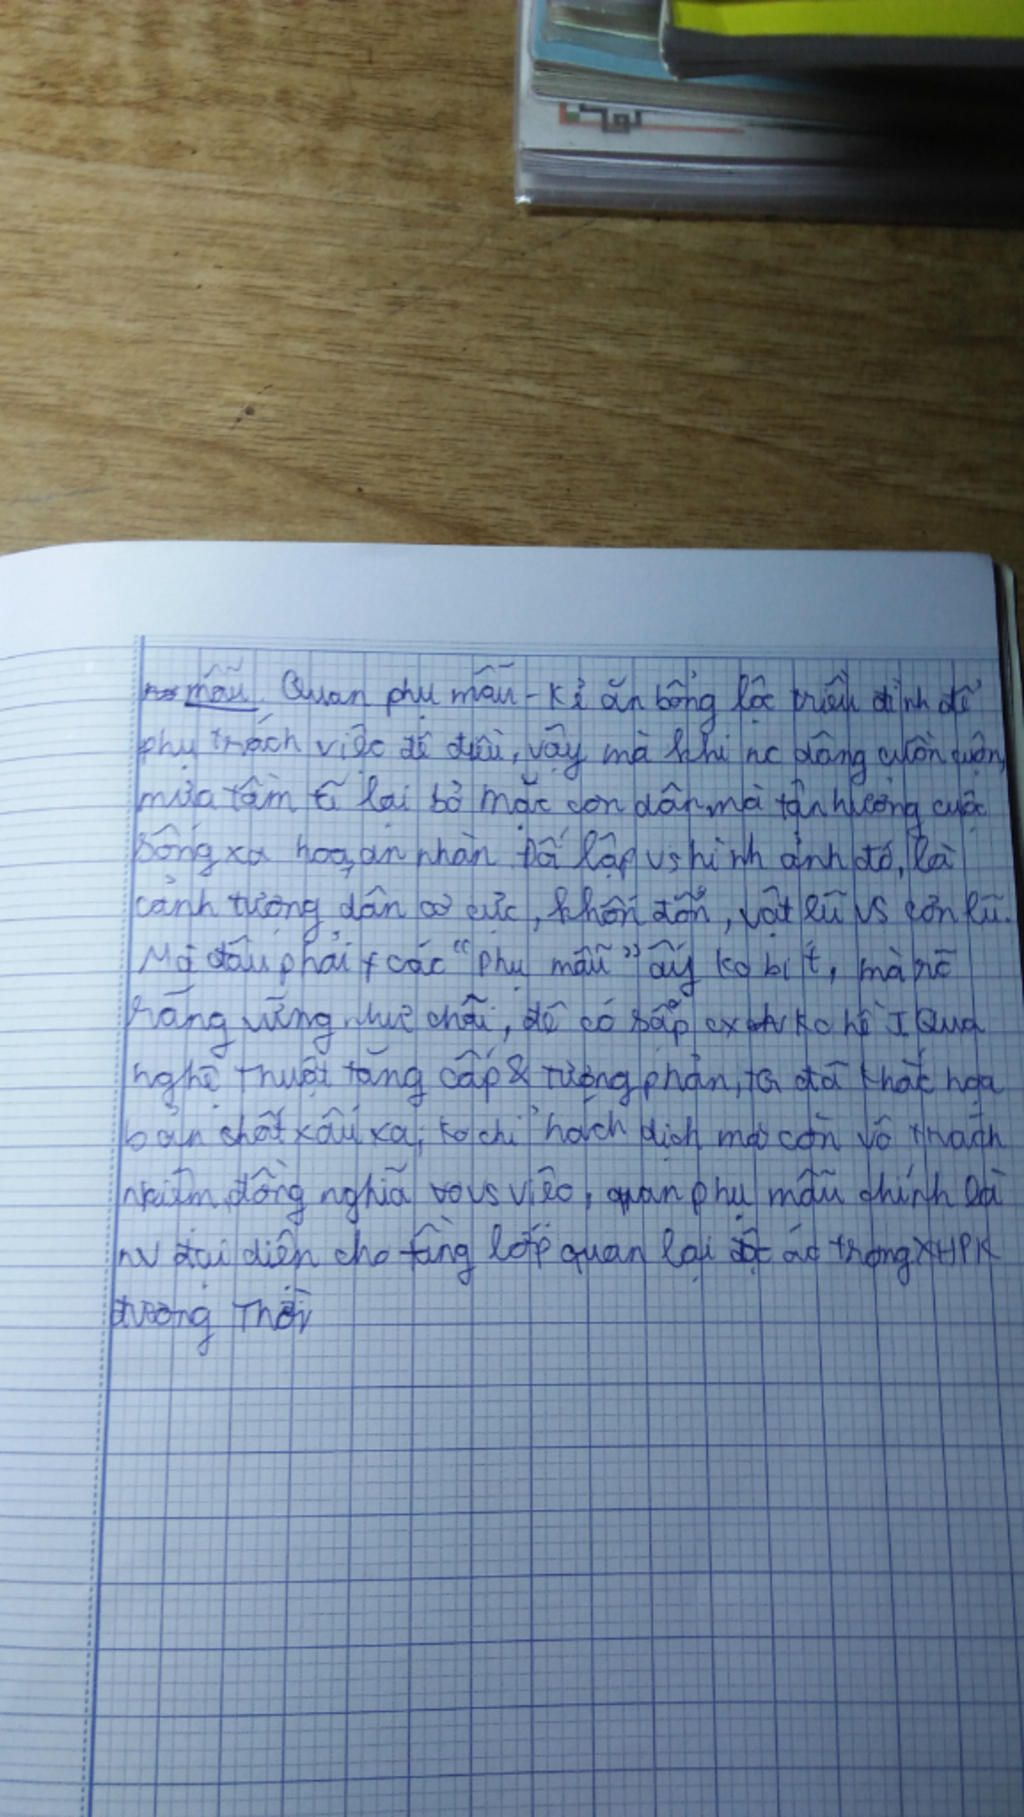 mẫu. Quan phụ mẫu - kẻ ăn bổng lộc triều đình để
phụ trách việc đê điều, vậy mà khi nc dâng cuồn cuộn,
mưa tầm tã lại bỏ mặc con dân mà tận hưởng cuộc
sống xa hoa, an nhàn Đối lập vs hình ảnh đó, là
cảnh tượng dân cơ cực, khốn đốn, vật lũ vs cơn lũ.
Mà đâu phải các "phụ mẫu" ấy ko bít, mà nó
rằng vững như chãi, đê có sập ko hề I Qua
nghệ thuật tăng cấp & tương phản, tg đã khắc họa
bản chất xấu xa, ko chỉ hách dịch mà còn vô trách
nhiệm, đồng nghĩa vs việc, quan phụ mẫu chính là
nv đại diện cho tầng lớp quan lại độc ác trong XHPK
đương thời